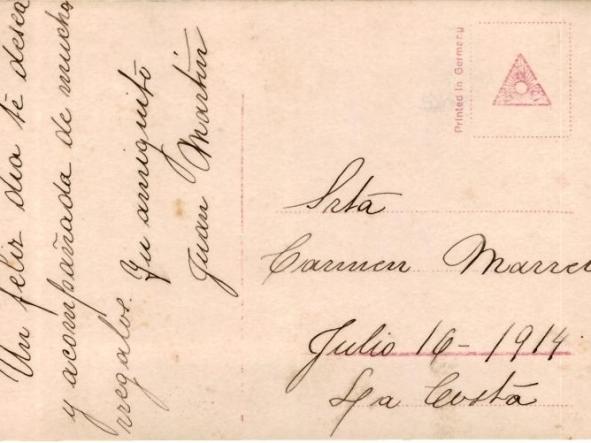 Un feliz dia te desea
y acompañada de mucho
rregalos. Tu amiguito
Juan Martin
Printed in Germany
Srta
Carmen Marre
Julio 16 - 1914
La Costa